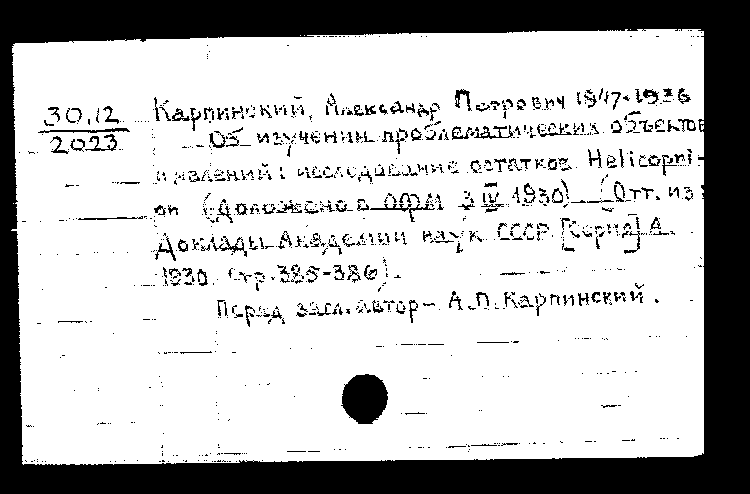 30.12
2023
Карпинский, Александр Петрович 1847-1936
Об изучении проблематических объектов
и явлений: исследование остатков Helicopri-
on (Доложено в ОФМ 3 IV 1930) (Отт. из:
Доклады Академии наук СССР. [Серия] А
1930. Стр. 385-386).
Перед загл. автор – А.П. Карпинский.